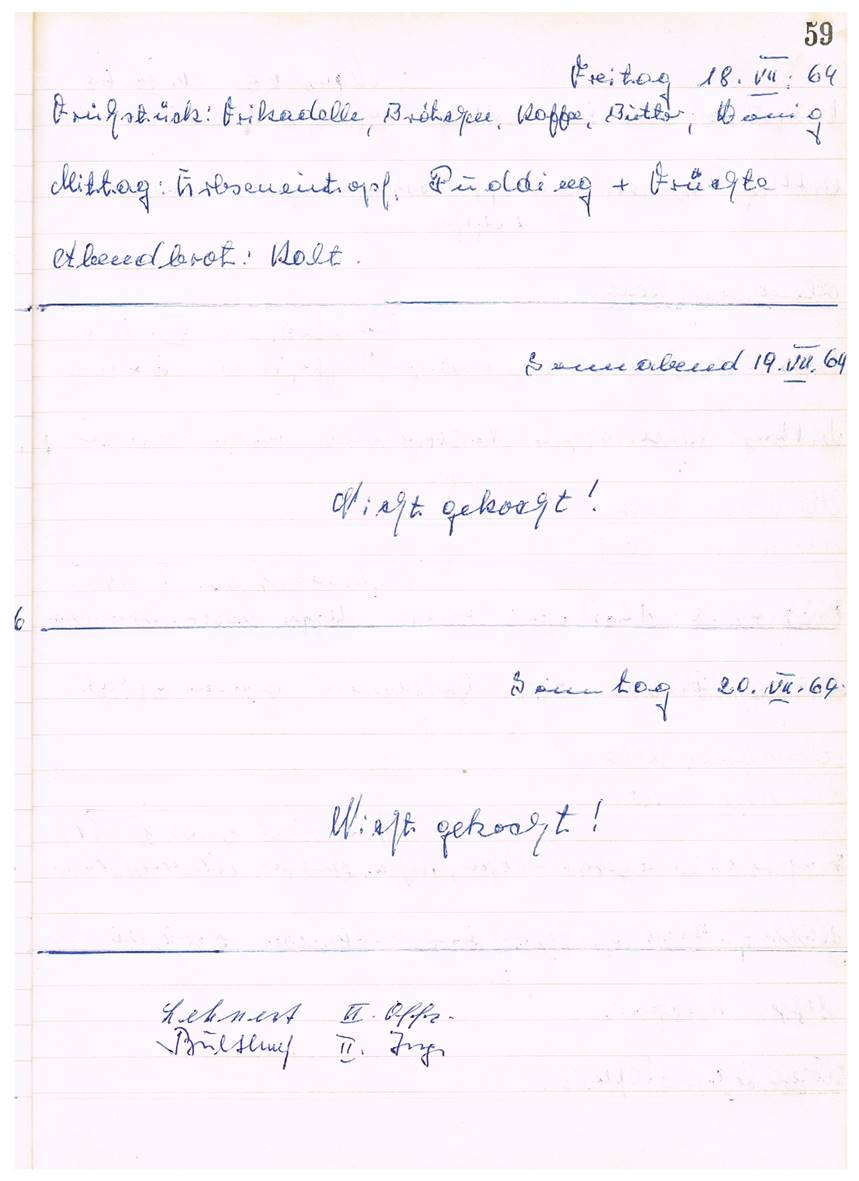 59
Freitag 18. VII. 64
Frühstück: Frikadelle, Brötchen, Kaffe, Butter, Honig
Mittag: Erbseneintopf, Pudding + Früchte
Abendbrot: Kalt.
Sonnabend 19. VII. 64
Nicht gekocht!
6
Sonntag 20. VII. 64.
Nicht gekocht!
Lehnert II. Offz.
II. Ing.